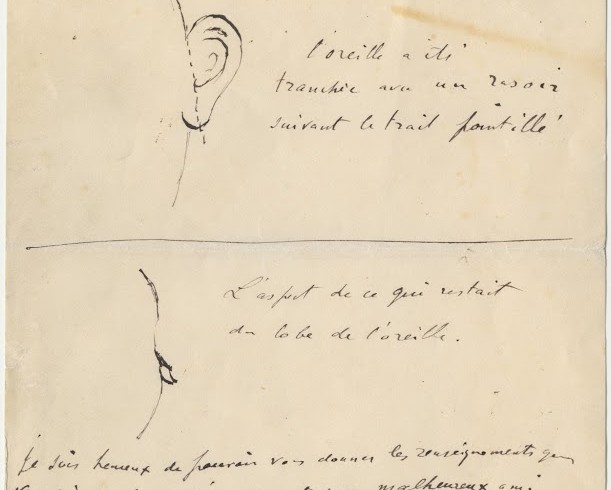 l'oreille a été
tranchée avec un rasoir
suivant le trait pointillé
L'aspect de ce qui restait
du lobe de l'oreille.
Je suis heureux de pouvoir vous donner les renseignements que
malheureux ami.